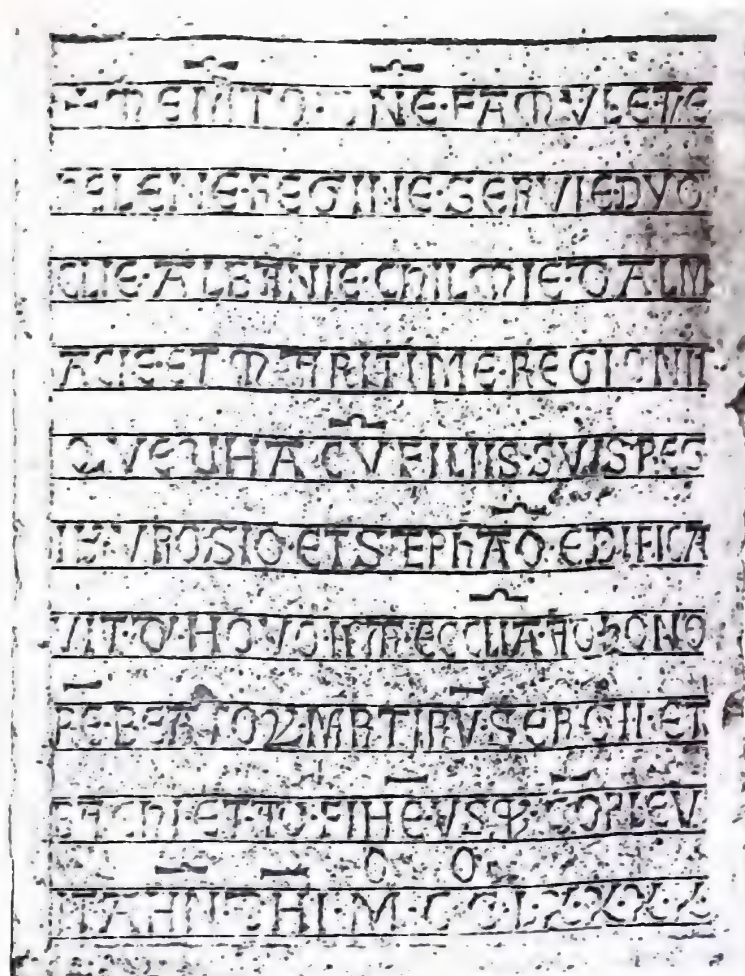 MEMTO · DNE · FAMVLE TVE
HELENE · REGINE · SERVIE DYO
CLIE · ALBANIE · CHILMIE · DALM
ACIE · ET MARITIME · REGIONIS
QVE VNA CV FILIIS · SVIS · REG
IB · VROSIO · ET STEPHAO · EDIFICA
VIT · D · NOVO ECCLIA · AD HONO
RE · BEATOR MARTIRV · SERGII · ET
BACHI · ET AD FINE VSQ COPLEV
ANNO DNI · M · CC · L · XXXX